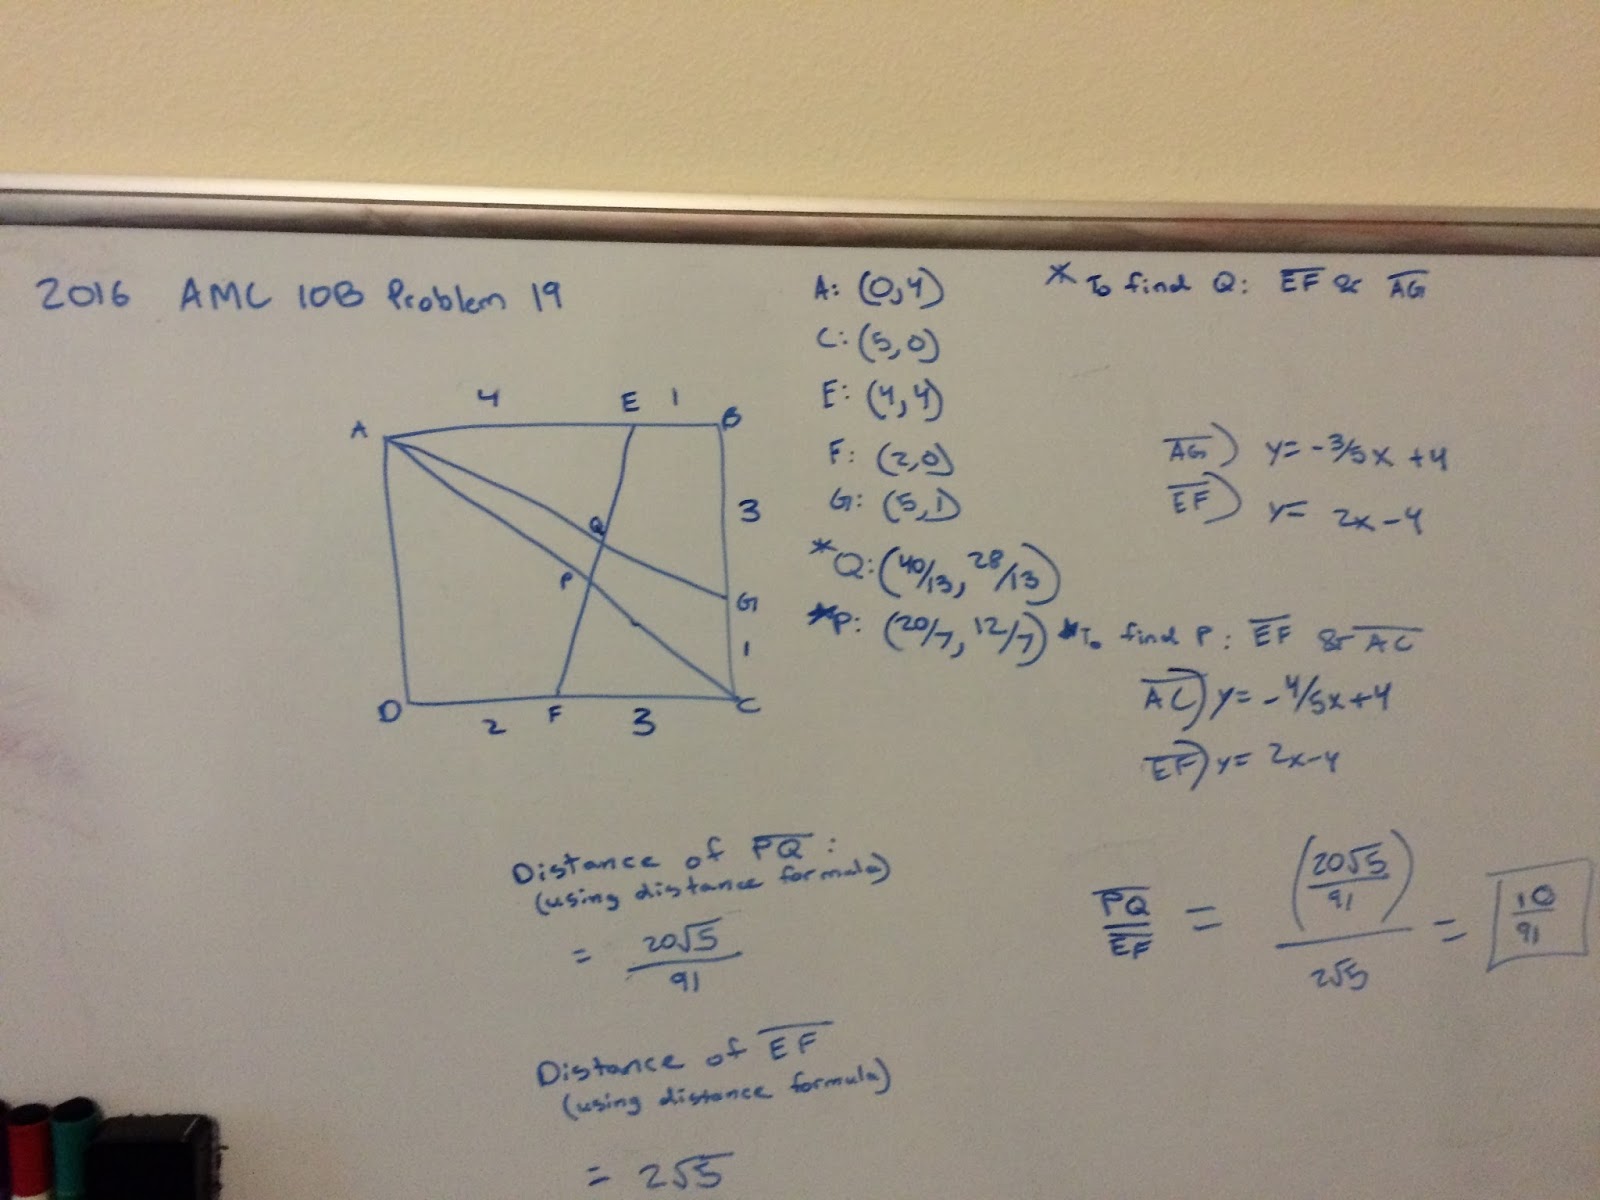 2016 AMC 10B Problem 19
A
4
E
1
B
3
Q
P
G
1
D
2
F
3
C
A: (0,4)
C: (5,0)
E: (4,4)
F: (2,0)
G: (5,1)
*Q: (40/13, 28/13)
*P: (20/7, 12/7)
* To find Q: EF & AG
AG) y= -3/5x +4
EF) y= 2x-4
*To find P: EF & AC
AC) y= -4/5x+4
EF) y= 2x-4
Distance of PQ:
(using distance formula)
= 20√5/91
Distance of EF
(using distance formula)
= 2√5
PQ/EF = (20√5/91)/2√5 = 10/91